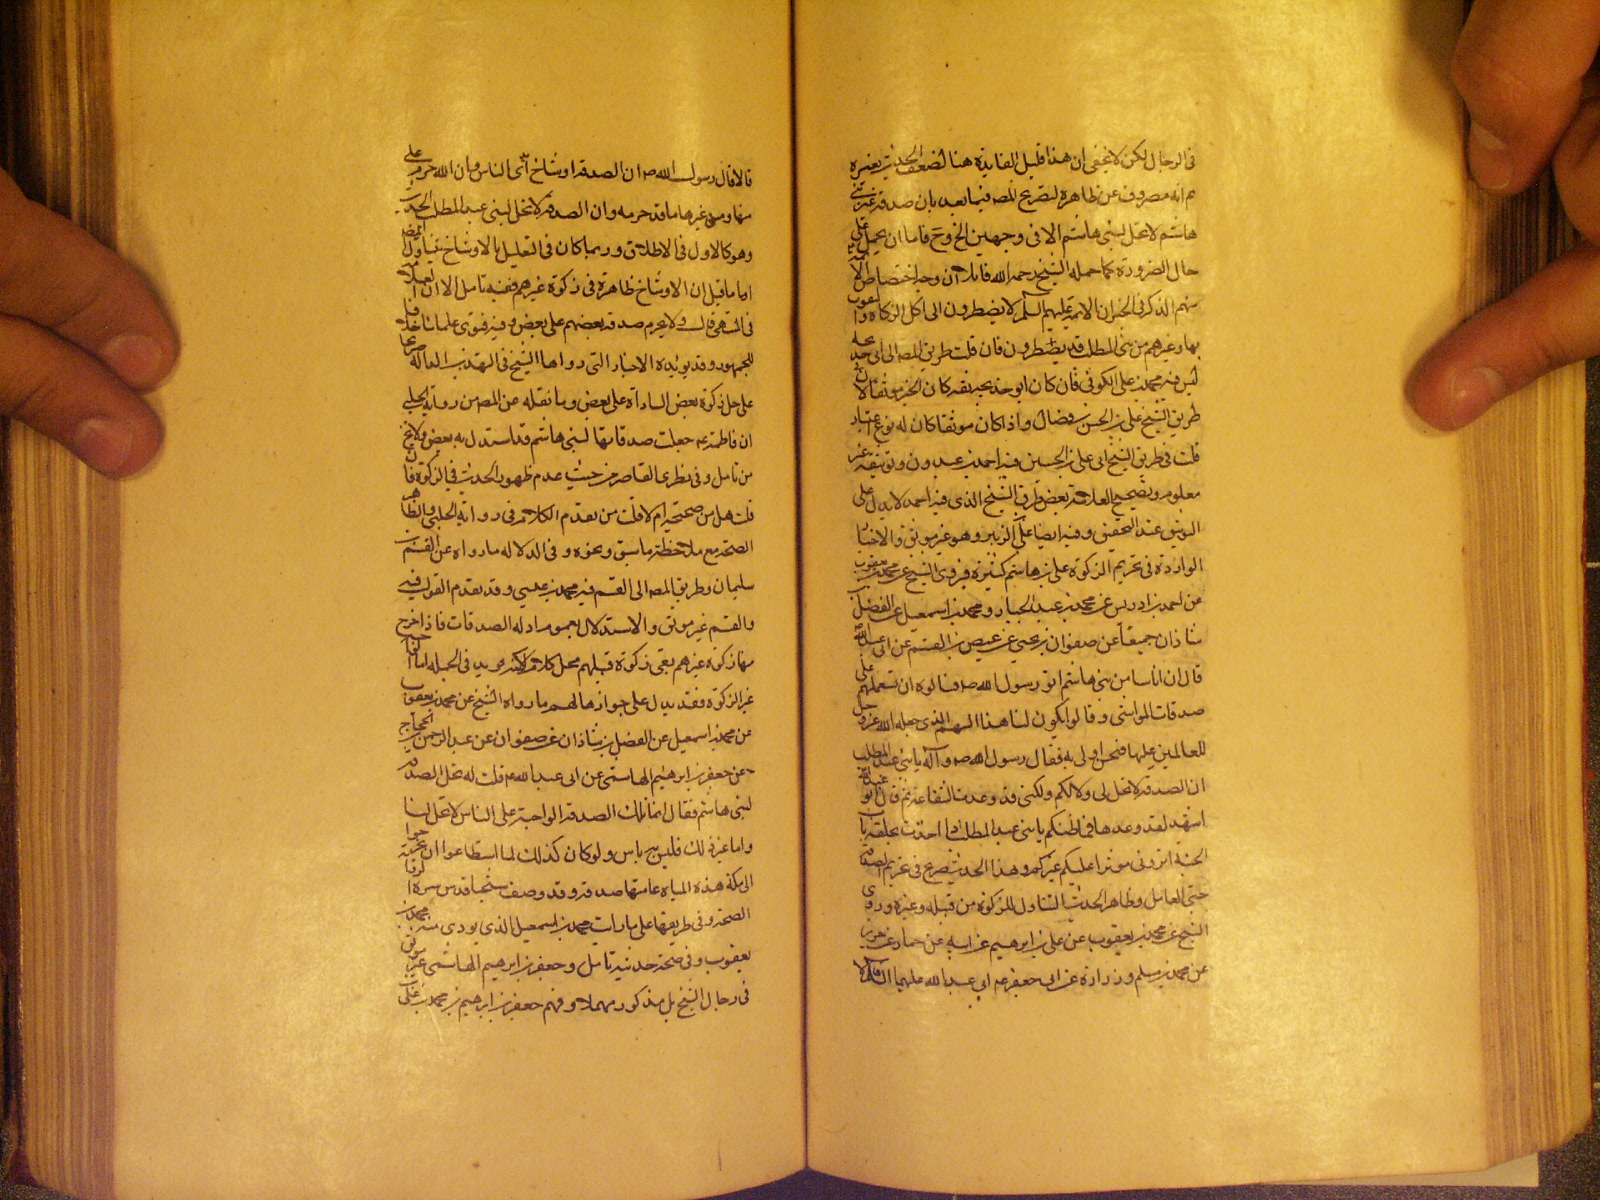 في الرجال لكن لا يخفى ان هذا قليل الفايدة هنا لضعف الحديث بغيره
ثم انه مصروف عن ظاهره لتصريح المصـ فيما بعد بان صدقة غير بني
هاشم لا تحل لبني هاشم الا في وجهين الخ وح فاما ان يحمل على
حال الضرورة كما حمله الشيخ رحمه الله قائلا ان وجه اختصاص الائمة
منهم الذكر في الخبر ان الائمة عليهم السلم لا يضطرون الى اكل الزكاة
بها وغيرهم من بني المطلب قد يضطرون فان قلت طريق المصـ الى ابي خديجة
ليس فيه محمد بن علي الكوفي فان كان ابو خديجة ثقة كان الخبر موثقا لان
طريق الشيخ علي بن الحسن بن فضال واذا كان موثقا كان له نوع اعتبار
قلت في طريق الشيخ الى علي بن الحسين فيه احمد بن عبدون وتوثيقه غير
معلوم وتصحيح العلامة بعض طرق الشيخ الذي فيه احمد لا يدل على
التوثيق عند التحقيق وفيه ايضا علي بن الزبير وهو غير موثق والاخبار
الواردة في تحريم الزكوة على بني هاشم كثيرة فروى الشيخ عن محمد بن يعقوب
عن احمد بن ادريس عن محمد بن عبد الجبار ومحمد بن اسمعيل عن الفضل بن
شاذان جميعا عن صفوان بن يحيى عن عيص بن القسم عن ابي عبد الله
قال ان اناسا من بني هاشم اتو رسول الله صـ فسالوه ان يستعملهم على
صدقات المواشي وقالوا يكون لنا هذا السهم الذي جعله الله عز وجل
للعاملين عليها فنحن اولى به فقال رسول الله صـ وآله يا بني عبد المطلب
ان الصدقة لا تحل لي ولا لكم ولكني قد وعدت الشفاعة ثم قال ابو عبد الله
اشهد لقد وعدها فما ظنكم يا بني عبد المطلب اذا اخذت بحلقة باب
الجنة اتروني موثرا عليكم غيركم وهذا الحديث صريح في تحريم الصدقة
حتى العامل وظاهر الحديث التناول للزكوة من قبله وغيره وروى
الشيخ عن محمد بن يعقوب عن علي بن ابرهيم عن ابيه عن حماد عن حريز
عن محمد بن مسلم وزرارة عن ابي جعفر عـ وابي عبد الله عليهما السلام
قالا قال رسول الله صـ ان الصدقة اوساخ ايدي الناس وان الله حرم علي
منها ومن غيرها ما قد حرمه وان الصدقة لا تحل لبني عبد المطلب الحديث
وهو كالاول في الاطلاق وربما كان في التعليل بالاوساخ يتناول
اما ما قيل ان الاوساخ ظاهرة في زكوة غيرهم ففيه تامل الا ان العلامة
في المنتهى قال ولا يحرم صدقة بعضهم على بعض وفيه فتوى علمائنا خلافا
للجمهور وقد يوئيده الاخبار التي رواها الشيخ في التهذيب الدالة صريحا
على حل زكوة بعض السادة على بعض وما نقله عن المصـ من رواية الحلبي
ان فاطمة عـ جعلت صدقاتها لبني هاشم قد استدل به بعض ولا يخ
من تامل وفي نظري القاصر من حيث عدم ظهور الحديث في الزكوة فان
قلت هل من صحيحة ام لا قلت من تقدم الكلام في رواية الحلبي والظاهر
الصحة مع ملاحظة ما سبق ونحوه وفي الدلالة ما رواه عن القسم بن
سليمان وطريق المصـ الى القسم فيه محمد بن عيسى وقد تقدم القول فيه
والقسم غير موثق والاستدلال بعموم ادلة الصدقات فاذا خرج
منها زكوة غيرهم بقي زكوة قبيلهم محل كلام لكنه مويد في الجملة اما
غير الزكوة فقد يدل على جوازها لهم ما رواه الشيخ عن محمد بن يعقوب
عن محمد بن اسمعيل عن الفضل بن شاذان عن صفوان عن عبد الرحمن بن الحجاج
عن جعفر بن ابرهيم الهاشمي عن ابي عبد الله عـ قلت له تحل الصدقة
لبني هاشم فقال انما تلك الصدقة الواجبة على الناس لا تحل لنا
واما غير ذلك فليس به باس ولو كان كذلك لما استطاعوا ان يخرجوا
الى مكة هذه المياه عامتها صدقة وقد وصف شيخنا قدس سره
الصحة وفي طريقها على ما رايت محمد بن اسمعيل الذي يروي عنه محمد بن
يعقوب وفي صحة حديثه تامل وجعفر بن ابرهيم الهاشمي غير موثق
في رجال الشيخ بل مذكور مهملا وفهم جعفر بن ابرهيم بن محمد بن علي